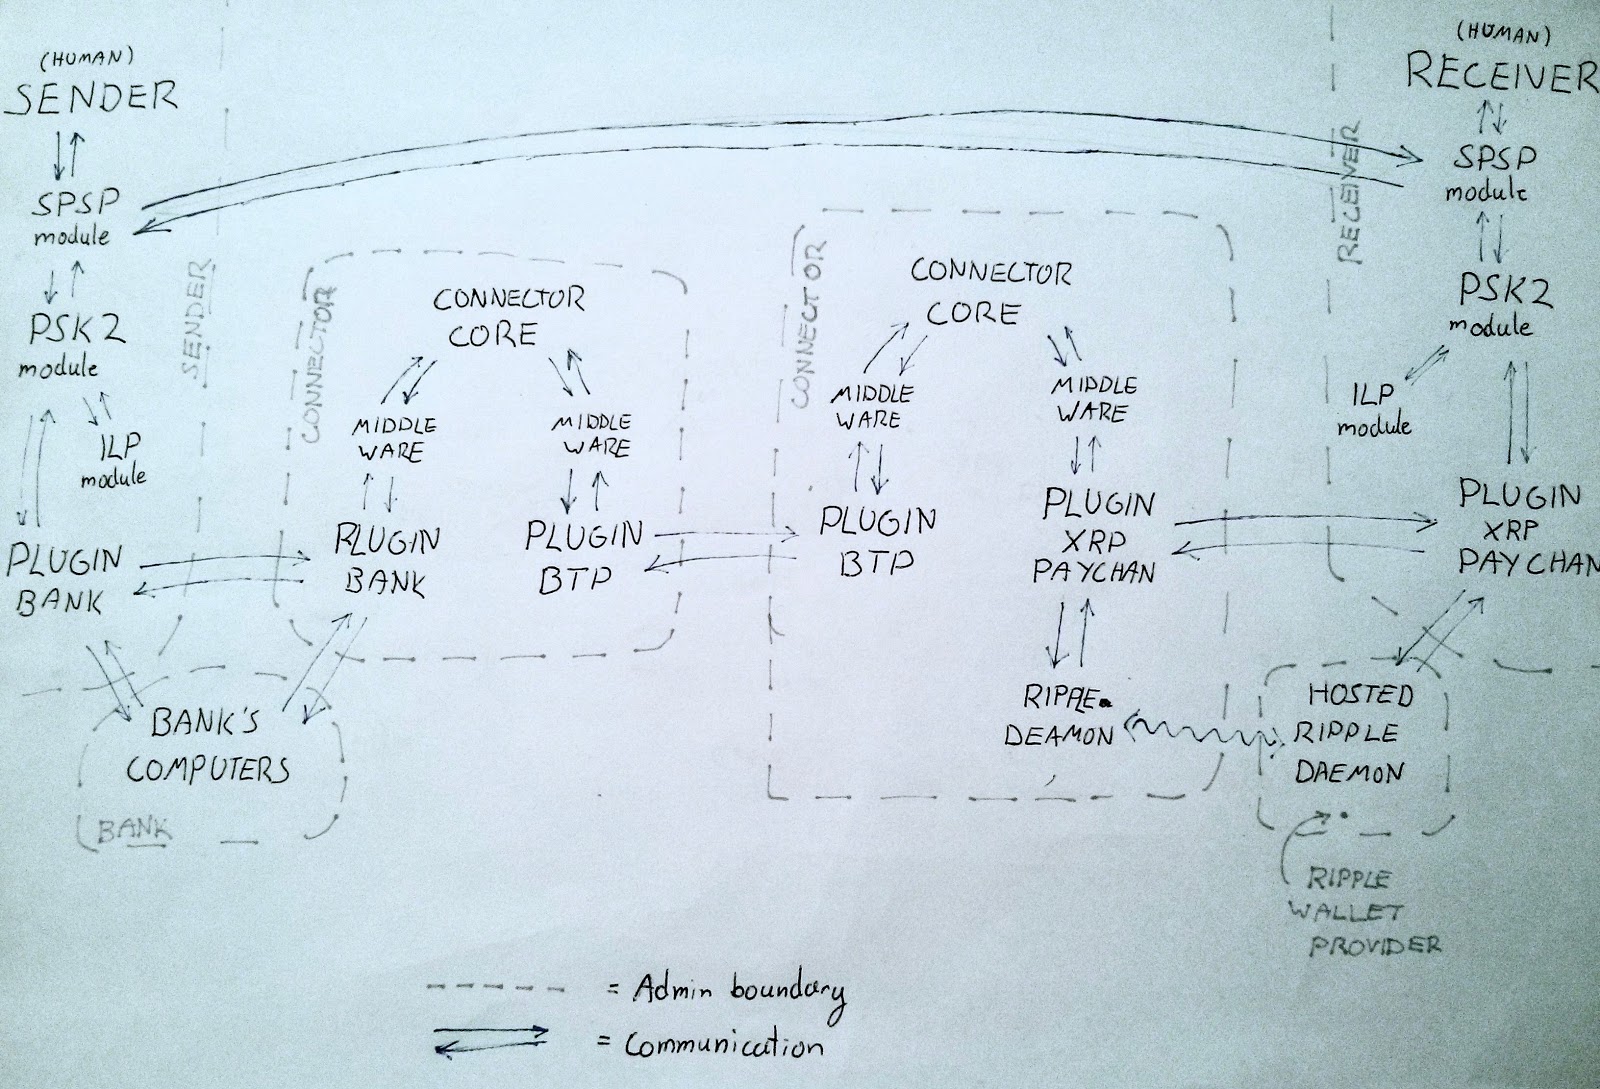 (HUMAN)
SENDER
SPSP
module
PSK2
module
ILP
module
PLUGIN
BANK
SENDER
BANK'S
COMPUTERS
BANK
CONNECTOR
CONNECTOR
CORE
MIDDLE
WARE
MIDDLE
WARE
PLUGIN
BANK
PLUGIN
BTP
CONNECTOR
CONNECTOR
CORE
MIDDLE
WARE
MIDDLE
WARE
PLUGIN
BTP
PLUGIN
XRP
PAYCHAN
RIPPLE
DEAMON
RECEIVER
(HUMAN)
RECEIVER
SPSP
module
PSK2
module
ILP
module
PLUGIN
XRP
PAYCHAN
HOSTED
RIPPLE
DAEMON
RIPPLE
WALLET
PROVIDER
= Admin boundary
= Communication